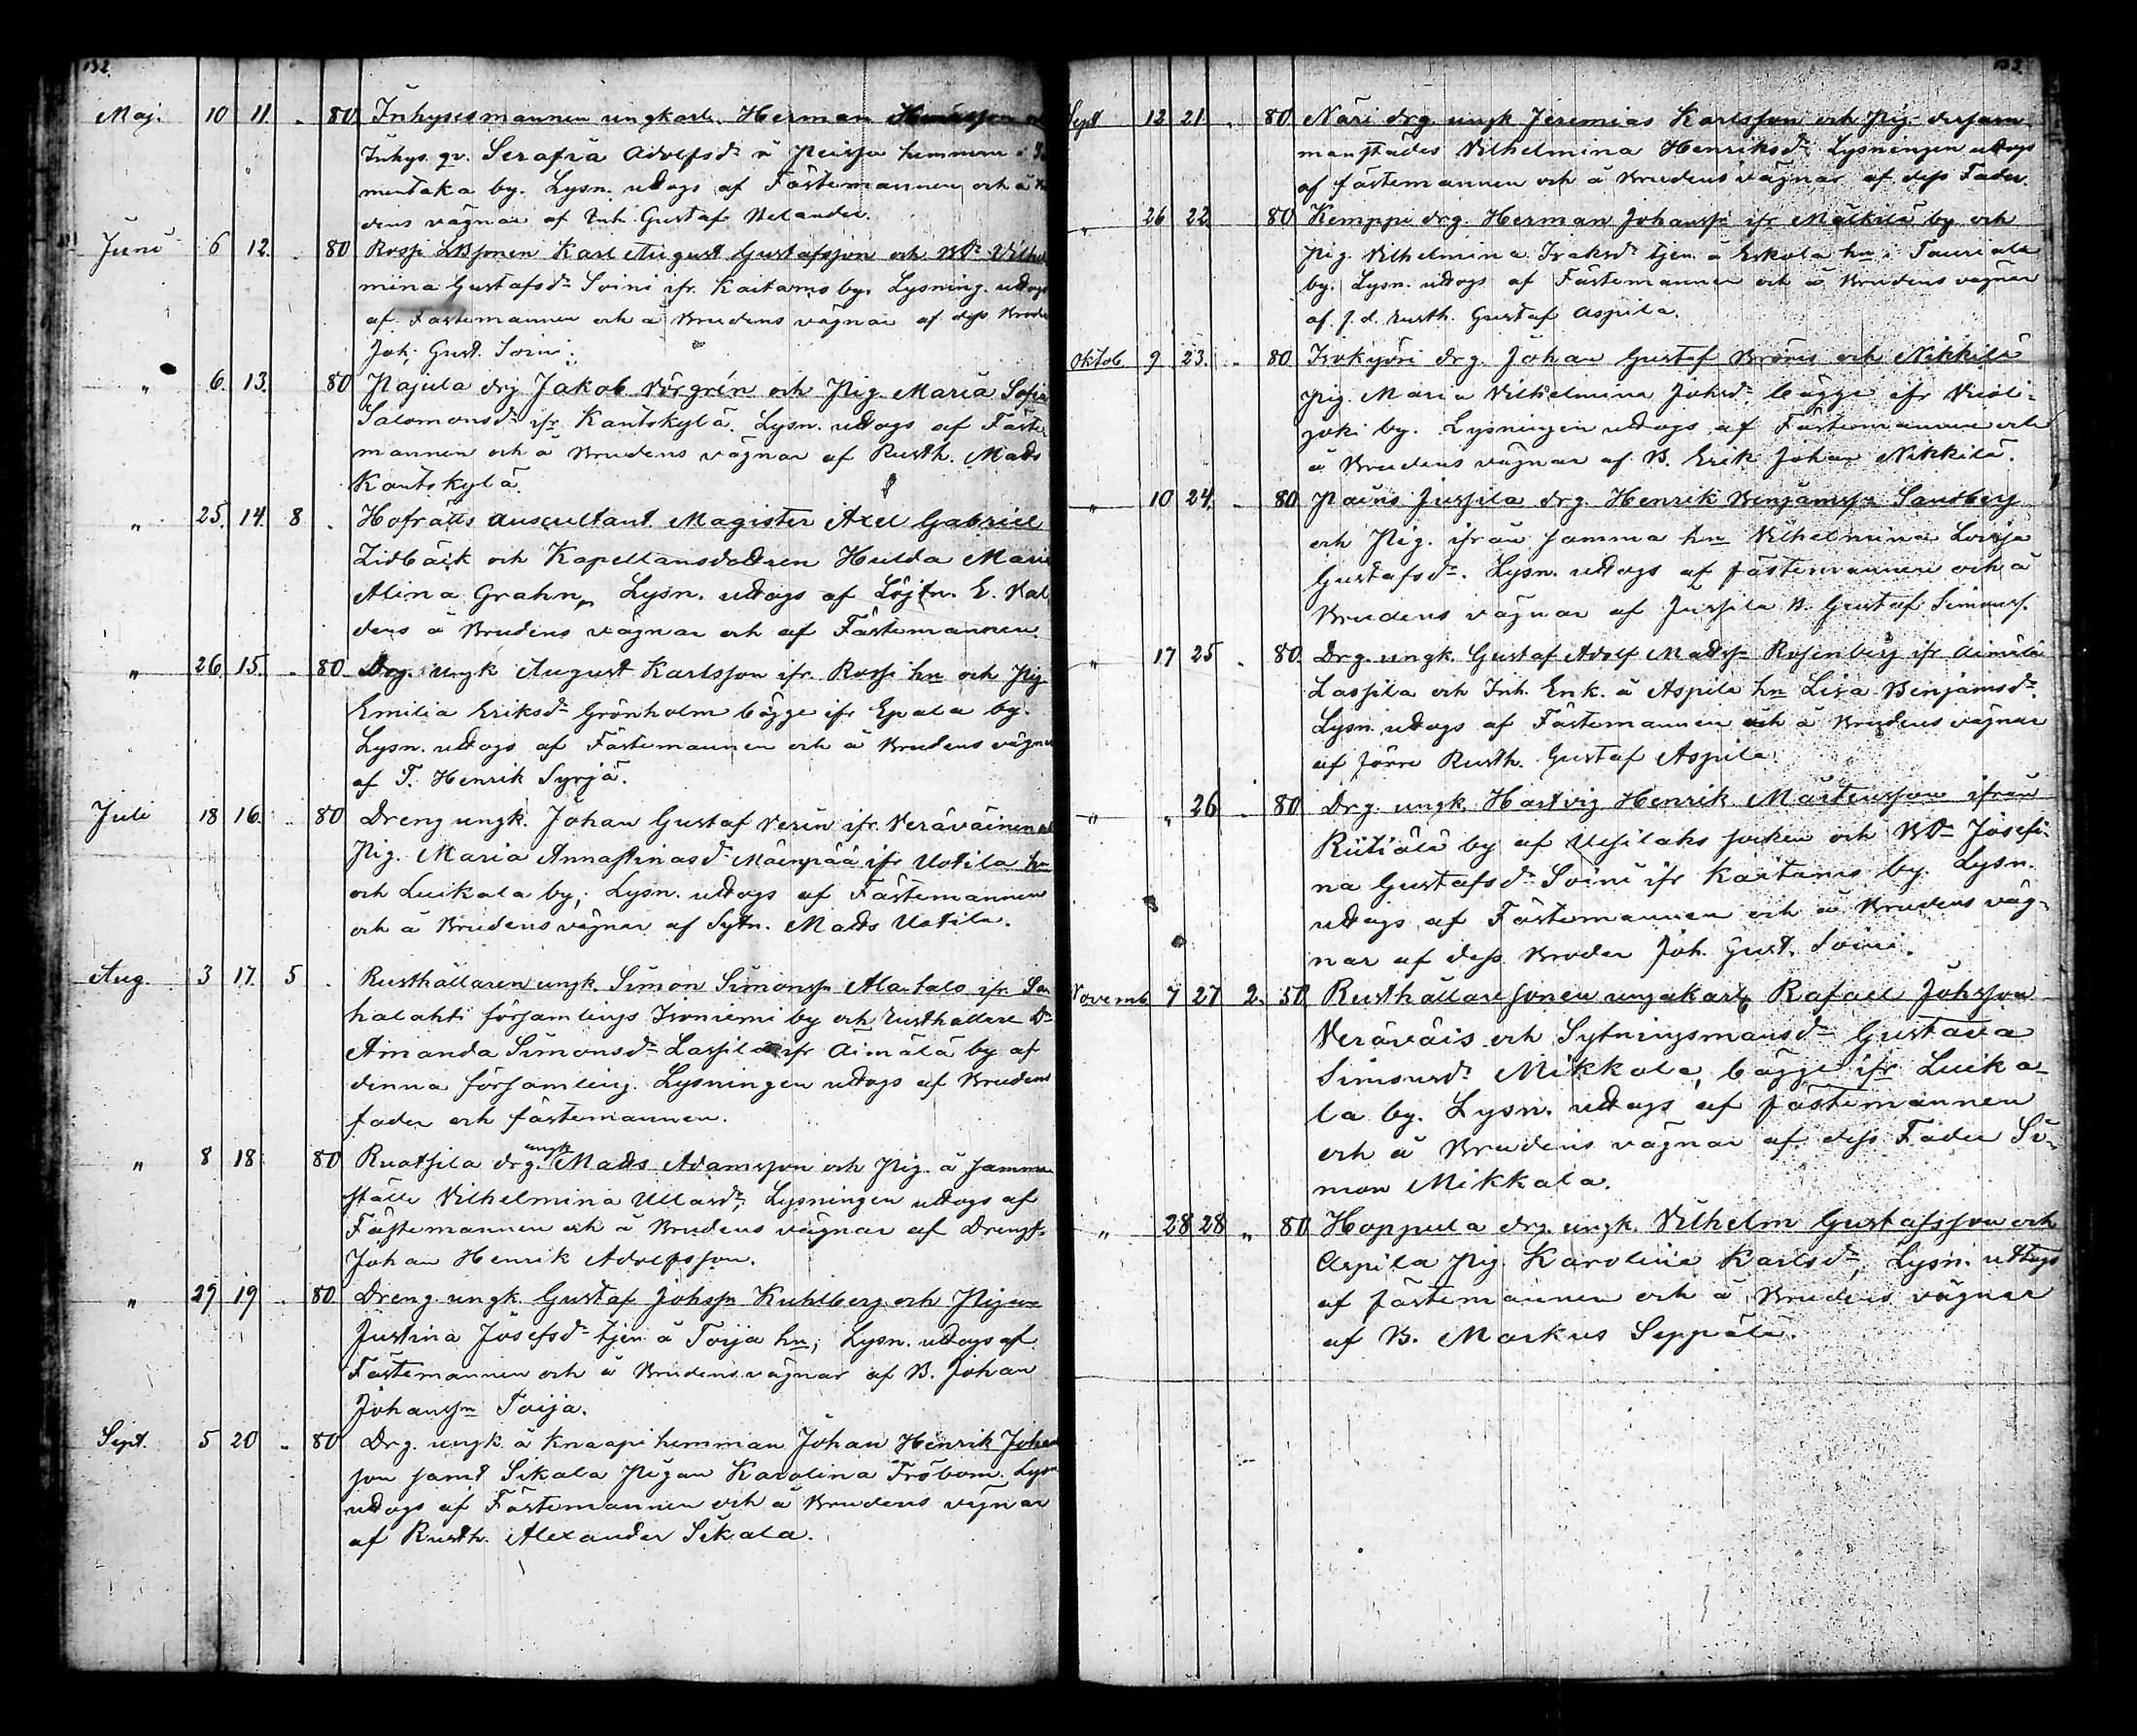 132.
Maj. 10 11. „ 80 Inhysesmannen ungkarln. Herman Henriksson
Inhys. qv. Serafia Adolfsdr å Peippo hemman i
mentaka by. Lysn. uttogs af Fästemannen och å
dens vägnar af Inh. Gustaf Helander.
Juni 6 12. „ 80 Rossi LBsonen Karl August Gustafsson och BDr Vilhel
mina Gustafsdr Soini ifr. Kaitamo by. Lysning. uttogs
af Fästemannen och å Brudens vägnar af dess Broder
Joh. Gust. Soini.
„ 6. 13. 80 Pajula drg Jakob Vörgrén och Pig. Maria Sofia
Salomonsdr ifr Kautskylä. Lysn. uttogs af Fäste
mannen och å Brudens vägnar af Rusth. Matts
Kautskylä.
„ 25. 14. 8 . Hofrätts Auscultant Magister Axel Gabriel
Lidbäck och Kapellansdottren Hulda Maria
Alina Grahn, Lysn. uttogs af Löjtn. E. Val
dens å Brudens vägnar och af Fästemannen.
„ 26 15. „ 80 Drg. ungk August Karlsson ifr. Rossi hn och Pig
Emilia Eriksdr Grönholm bägge ifr Epala by.
Lysn. uttogs af Fästemannen och å Brudens vägnar
af T. Henrik Syrjä.
Juli 18 16. „ 80 Dreng ungk. Johan Gustaf Verin ifr. Veräväinen
Pig. Maria Annastinasdr Mäenpää ifr Uotila hn
och Luikala by; Lysn. uttogs af Fästemannen
och å Brudens vägnar af Sytn. Matts Uotila.
Aug. 3 17. 5 . Rusthållaren ungk. Simon Simonsn Ala-talo ifr Sa
halahti församlings Isoniemi by och rusthållare Dr
Amanda Simonsdr Lassila ifr Aimälä by af
denna församling. Lysningen uttogs af Brudens
fader och fästemannen.
„ 8 18 80 Ruatsila drg. ungk Matts Adamsson och Pig. å samma
ställe Vilhelmina Ullasdr; Lysningen uttogs af
Fästemannen och å Brudens vägnar af Drengn.
Johan Henrik Adolfsson.
„ 29 19 „ 80 Dreng ungk Gustaf Johssn Kuhlberg och Pigan
Justina Josefsdr tjen. å Toija hn; Lysn. uttogs af
Fästemannen och å Brudens vägnar af B. Johan
Johanssn Toija.
Sept. 5 20 „ 80 Drg. ungk. å Knaapi hemman Johan Henrik Johans
son samt Sikala Pigan Karolina Fröbom. Lysn
uttogs af Fästemannen och å Brudens vägnar
af Rusth. Alexander Sikala.
133.
Sept 12 21 „ 80 Näri drg. ungk Jeremias Karlsson och Pig. dersam-
manstädes Vilhelmina Henriksdr Lysningen uttogs
af fästemannen och å Brudens vägnar af dess Fader.
„ 26 22 80 Kemppi drg. Herman Johanssn ifr Mälkilä by och
Pig. Vilhelmina Isaksdr tjen. å Eskola hn i Tauriala
by. Lysn. uttogs af Fästemannen och å Brudens vägnar
af f.d. rusth. Gustaf Aspila.
Oktob 9 23. „ 80 Isokyöri drg. Johan Gustaf Broms och Nikkilä
pig. Maria Vilhelmina Johsdr bägge ifr Violi-
joki by. Lysningen uttogs af Fästemannen och
å Brudens vägnar af B. Erik Johan Nikkilä.
„ 10 24. „ 80 Pauns Jussila drg. Henrik Benjamssn Sandberg
och Pig. ifrån samma hn Vilhelmina Lovisa
Gustafsdr. Lysn. uttogs af fästemannen och å
Brudens vägnar af Jussila B. Gustaf Simonss.
„ 17 25 „ 80 Drg. ungk. Gustaf Adolf Mattssn Rosenberg ifr Aimälä
Lassila och Inh. Enk. å Aspila hn Lisa Benjamsdr.
Lysn. uttogs af Fästemannen och å Brudens vägnar
af förre Rusth. Gustaf Aspila.
„ „ 26 „ 80 Drg. ungk. Hartvig Henrik Mårtensson ifrån
Riitiälä by af Vesilaks socken och BDr Josefi-
na Gustafsdr Soini ifr Kaitamo by. Lysn.
uttogs af Fästemannen och å Brudens väg-
nar af dess Broder Joh. Gust. Soini.
Novemb 7 27 2. 50 Rusthållaresonen ungakarln Rafael Johsson
Veräväis och Sytningsmansdr Gustava
Simonsdr Mikkola, bägge ifr Luika-
la by. Lysn. uttogs af fästemannen
och å Brudens vägnar af dess Fader Si-
mon Mikkala.
„ 28 28 „ 80 Hoppula drg. ungk. Vilhelm Gustafsson och
Aspila Pig. Karolina Karlsdr, Lysn. uttogs
af fästemannen och å Brudens vägnar
af B. Markus Seppälä.